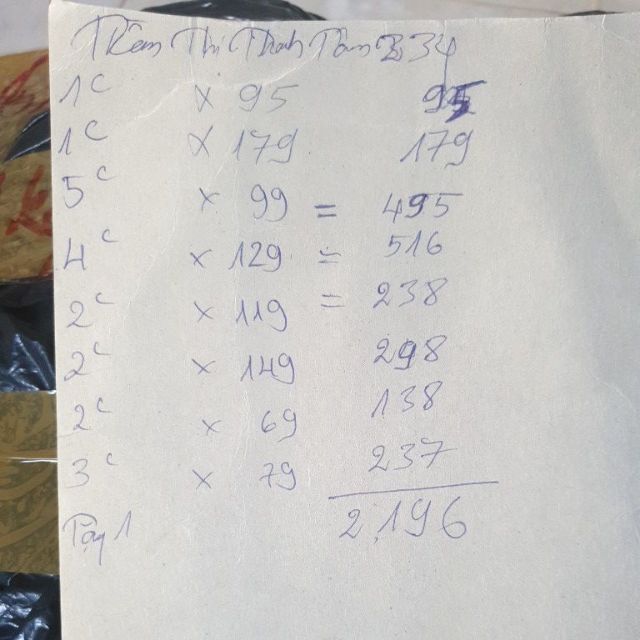 Thị Thanh 334
1c x 95 95
1c x 179 179
5c x 99 = 495
4c x 129 = 516
2c x 119 = 238
2c x 149 298
2c x 69 138
3c x 79 237
2.196